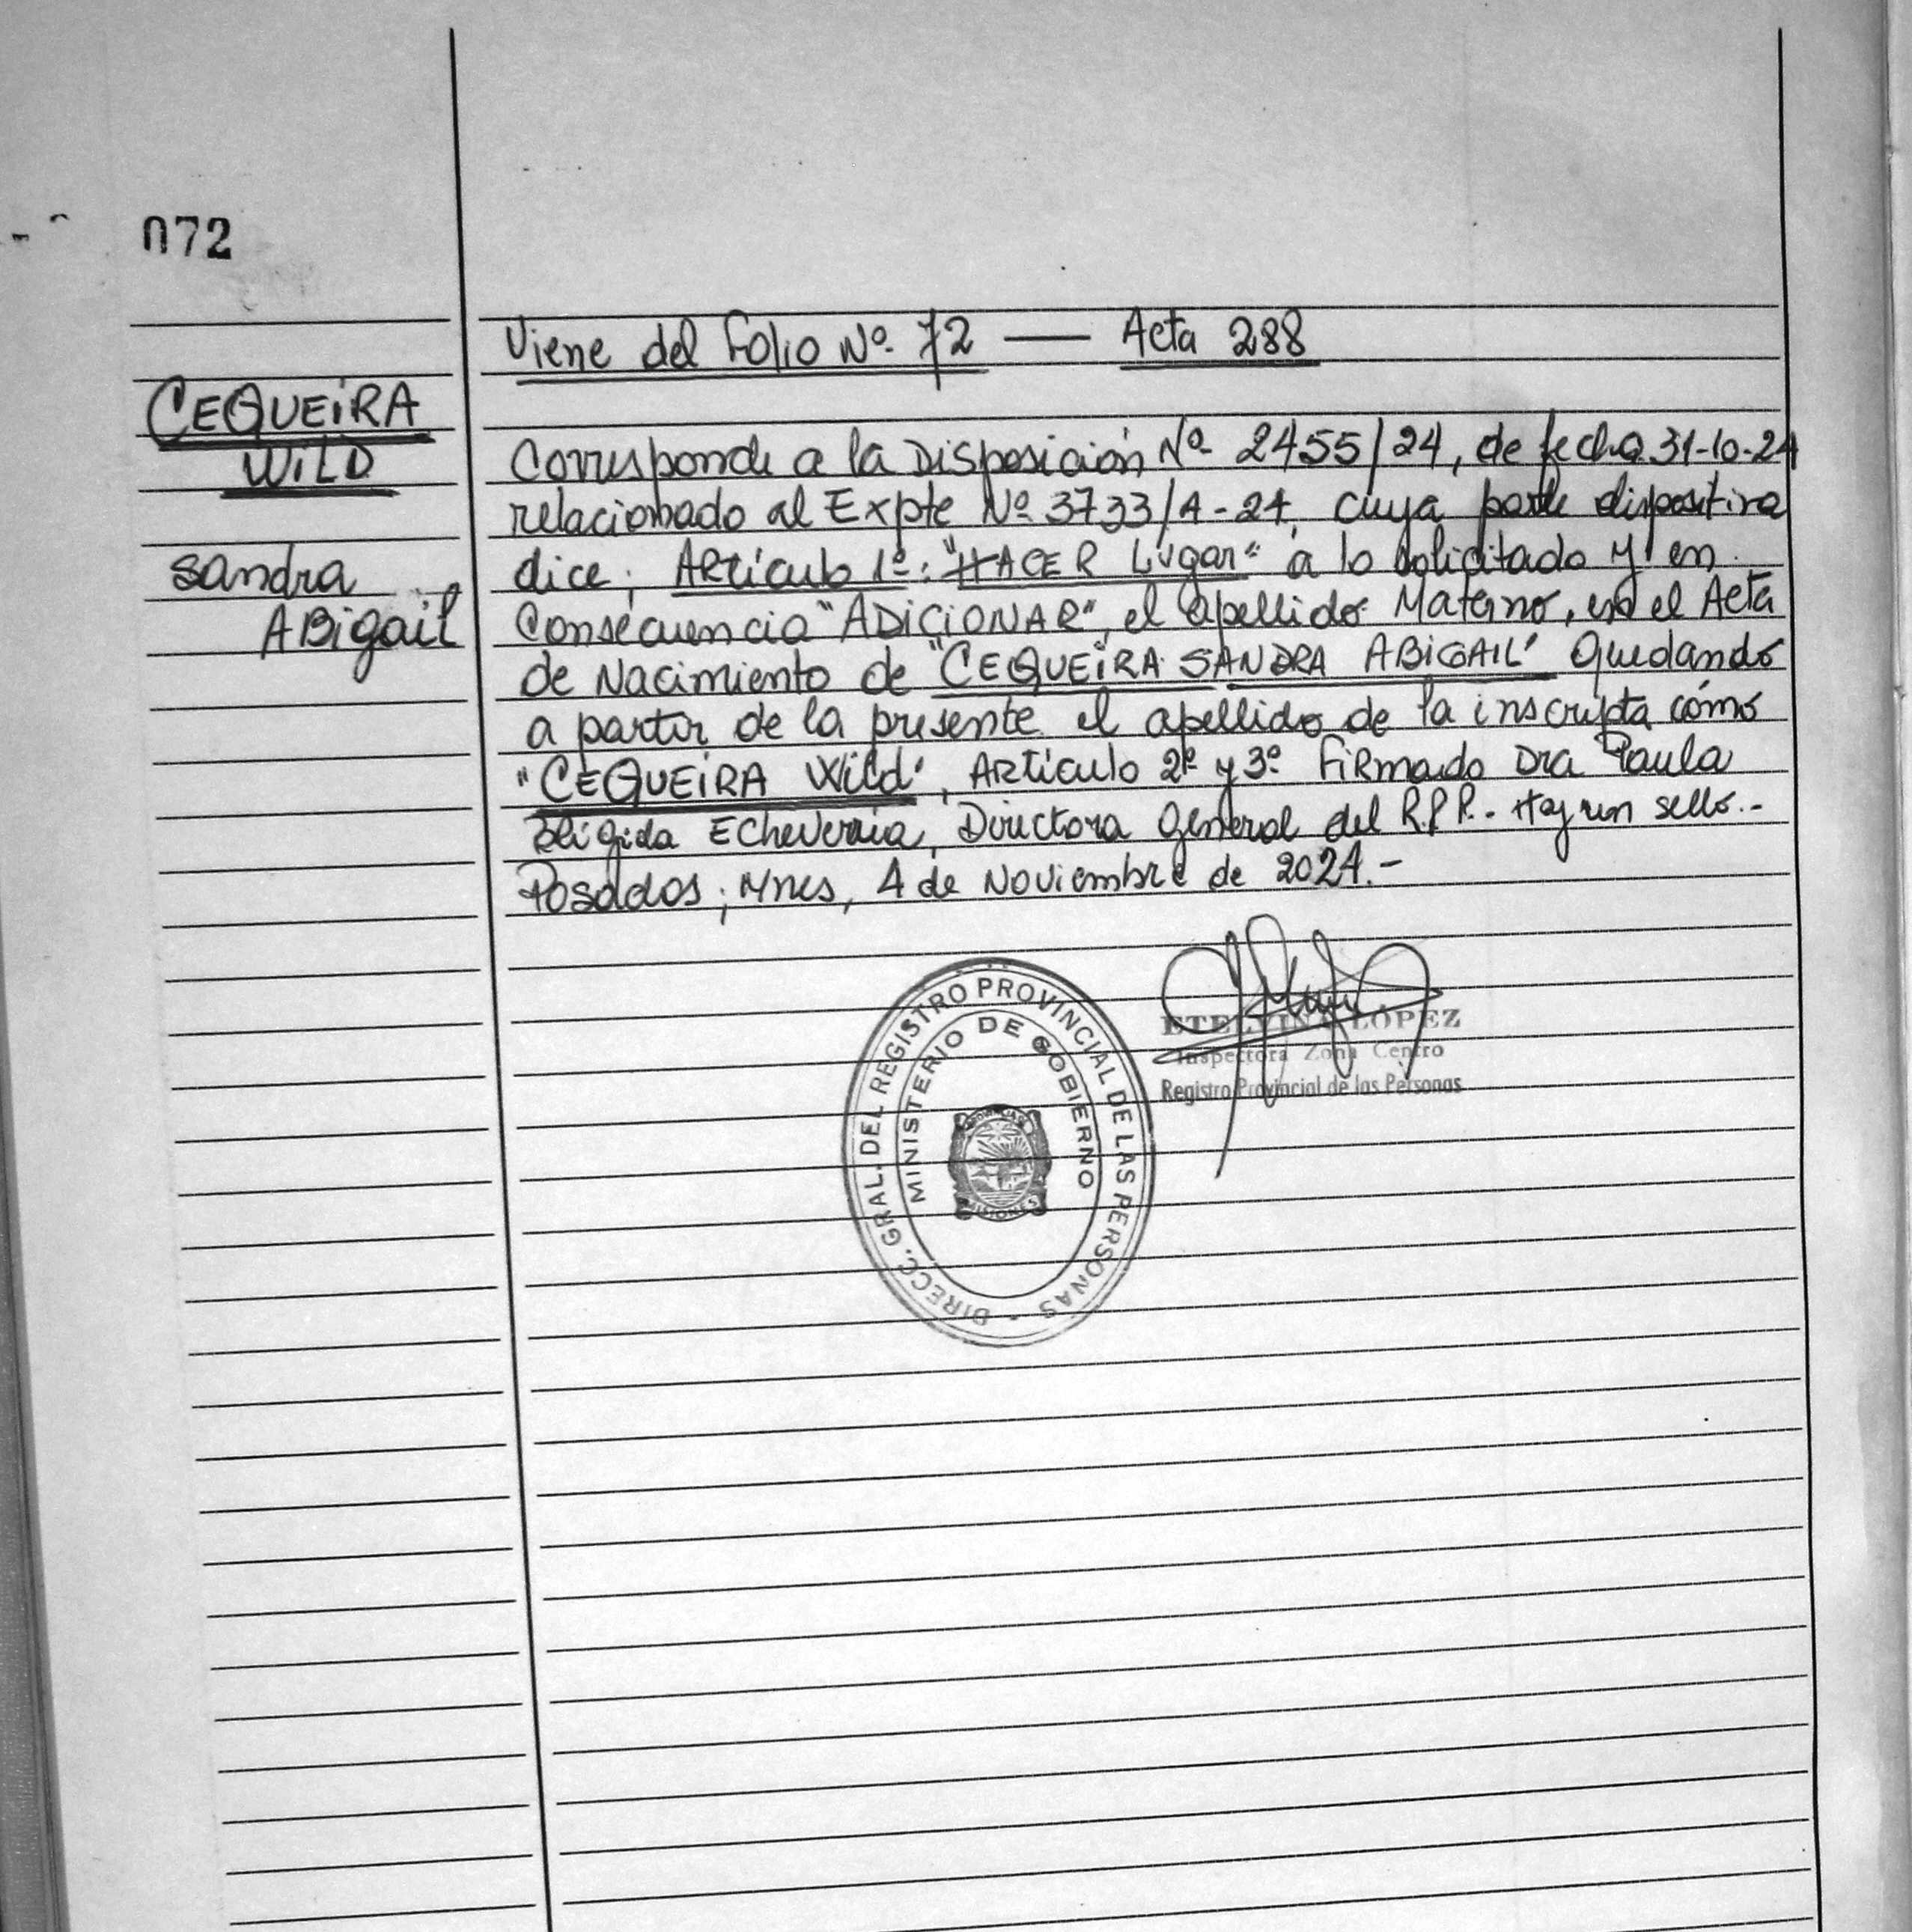 072
Viene del Folio Nº 72 — Acta 288
CEQUEIRA
WILD
Sandra
ABigail
Corresponde a la Disposición Nº 2455/24, de fecha 31-10-24
relacionado al Expte Nº 3733/A-24, cuya parte dispositiva
dice; ARtículo 1º: "HACER Lugar" a lo solicitado y en
Consecuencia "ADICIONAR", el apellido Materno, en el Acta
de Nacimiento de "CEQUEIRA SANDRA ABIGAIL" Quedando
a partir de la presente el apellido de la inscripta cómo
"CEQUEIRA Wild", ARtículo 2º y 3º FiRmado Dra Paula
Brígida Echeverria, Directora General del R.P.P.- Hay un sello.-
Posadas; Mnes, 4 de Noviembre de 2024.-
DIRECC. GRAL. DEL REGISTRO PROVINCIAL DE LAS PERSONAS
MINISTERIO DE GOBIERNO
MISIONES
ETELVINA LÓPEZ
Inspectora Zona Centro
Registro Provincial de las Personas